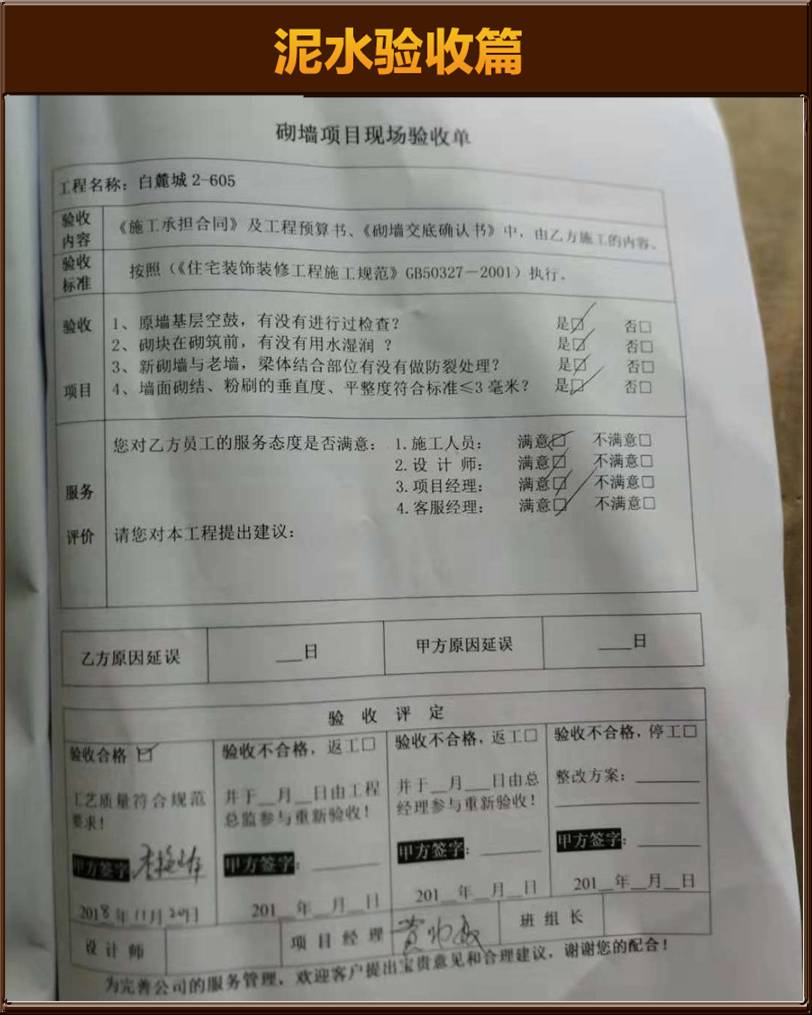 泥水验收篇
砌墙项目现场验收单
工程名称：白麓城 2-605
验收内容 《施工承担合同》及工程预算书、《砌墙交底确认书》中，由乙方施工的内容。
验收标准 按照（《住宅装饰装修工程施工规范》GB50327－2001）执行。
验收项目
1、原墙基层空鼓，有没有进行过检查？ 是□ 否□
2、砌块在砌筑前，有没有用水湿润 ？ 是□ 否□
3、新砌墙与老墙，梁体结合部位有没有做防裂处理？ 是□ 否□
4、墙面砌结、粉刷的垂直度、平整度符合标准≤3 毫米？ 是□ 否□
服务评价
您对乙方员工的服务态度是否满意：1.施工人员： 满意□ 不满意□
2.设 计 师： 满意□ 不满意□
3.项目经理： 满意□ 不满意□
4.客服经理： 满意□ 不满意□
请您对本工程提出建议：
乙方原因延误 ___日 甲方原因延误 ___日
验 收 评 定
验收合格 □ 验收不合格，返工□ 验收不合格，返工□ 验收不合格，停工□
工艺质量符合规范要求！ 并于__月__日由工程总监参与重新验收！ 并于__月__日由总经理参与重新验收！ 整改方案：
甲方签字 甲方签字： 甲方签字： 甲方签字：
2018年11月20日 201__年__月__日 201__年__月__日 201__年__月__日
设计师 项目经理 班组长
为完善公司的服务管理，欢迎客户提出宝贵意见和合理建议，谢谢您的配合！